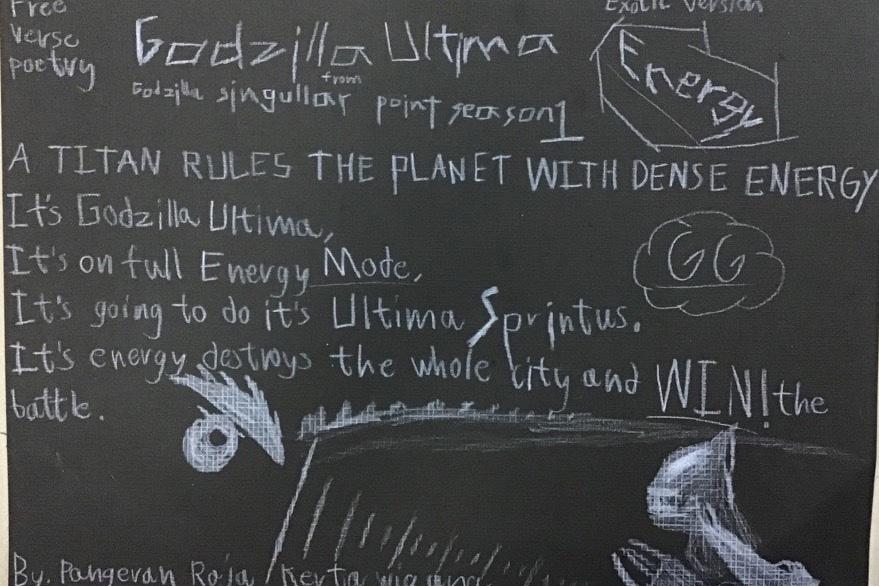 Free
Verse
poetry
Godzilla Ultima
from
Godzilla singullar point season 1
Exotic Version
Energy
A TITAN RULES THE PLANET WITH DENSE ENERGY
It's Godzilla Ultima,
It's on full Energy Mode,
It's going to do it's Ultima Sprintus.
It's energy destroys the whole city and WIN! the
battle.
GG
By. Pangeran Raja Kerta wiguna